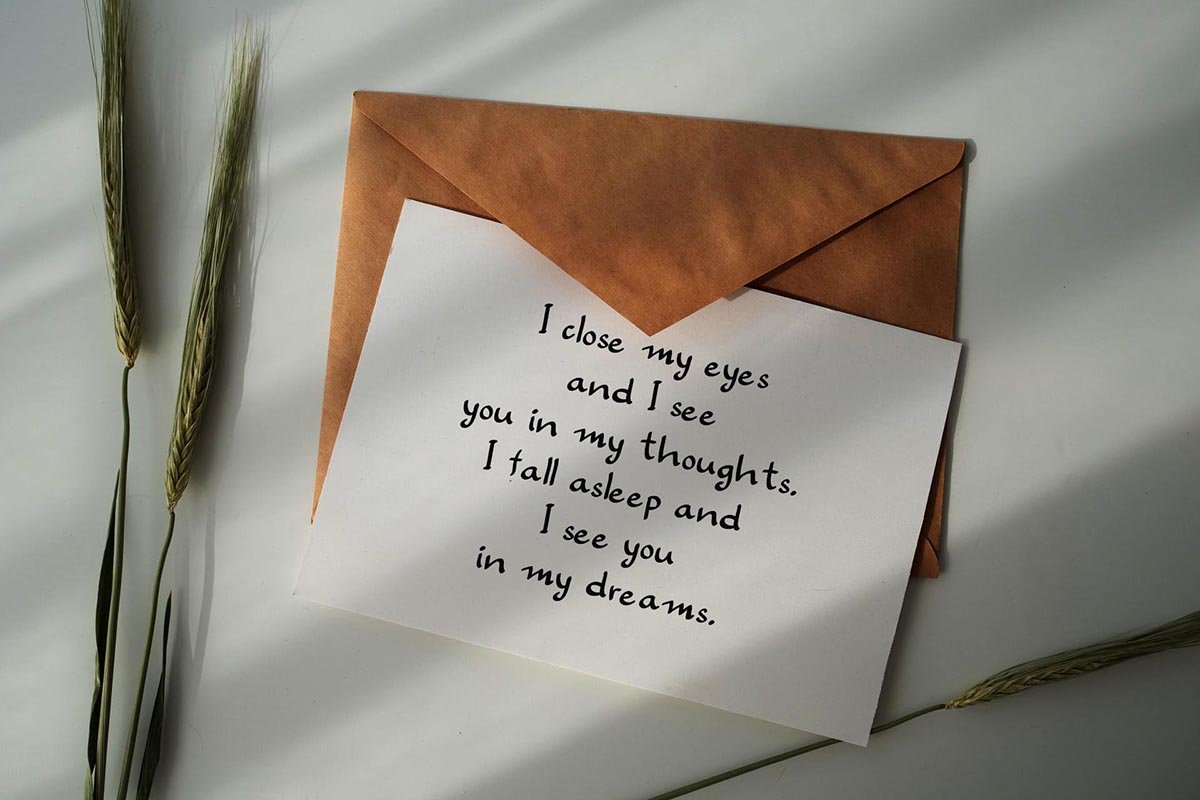 I close my eyes
and I see
you in my thoughts.
I fall asleep and
I see you
in my dreams.